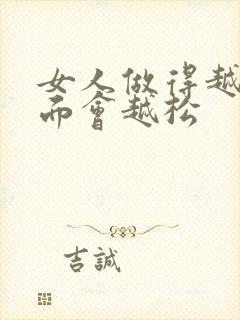 女人做得越
而會越松
吉誠